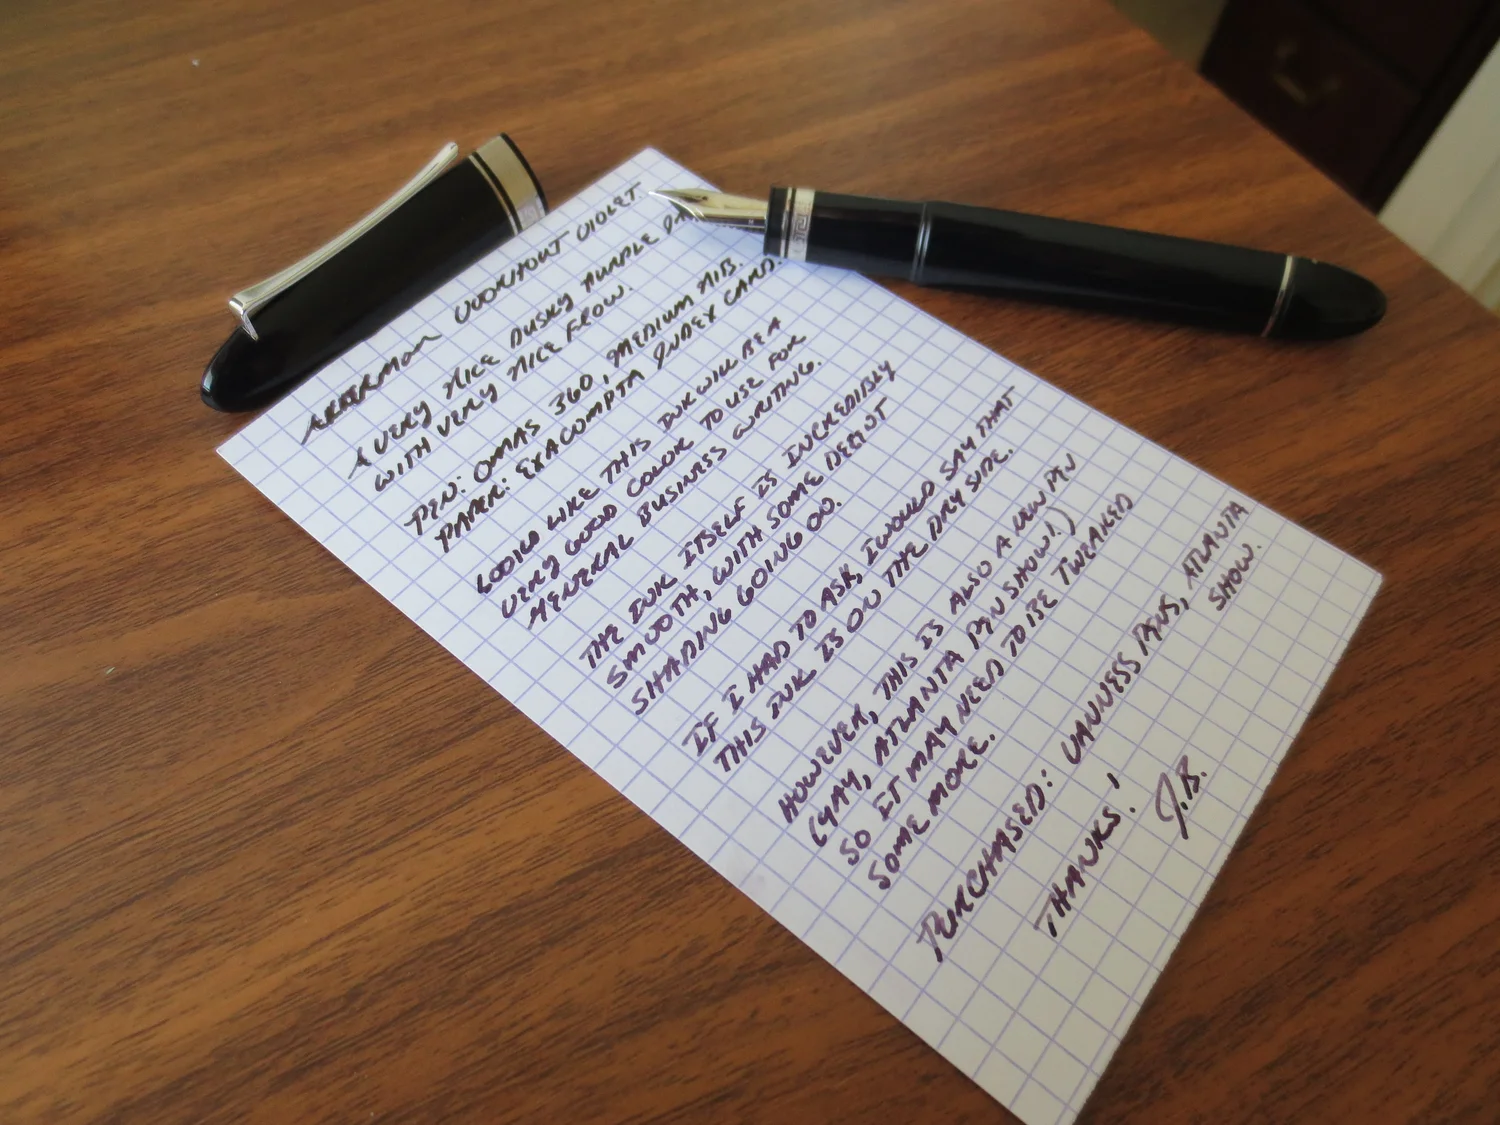 AKKERMAN VOORHOUT VIOLET.
A VERY NICE DUSKY PURPLE
WITH VERY NICE FLOW.
PEN: OMAS 360, MEDIUM NIB.
PAPER: EXACOMPTA INDEX CARD.
LOOKS LIKE THIS INK WILL BE A
VERY GOOD COLOR TO USE FOR
GENERAL BUSINESS WRITING.
THE INK ITSELF IS INCREDIBLY
SMOOTH, WITH SOME DECENT
SHADING GOING ON.
IF I HAD TO ASK, I WOULD SAY THAT
THIS INK IS ON THE DRY SIDE.
HOWEVER, THIS IS ALSO A NEW PEN
(YAY, ATLANTA PEN SHOW!)
SO IT MAY NEED TO BE TWEAKED
SOME MORE.
PURCHASED: VANNESS PENS, ATLANTA
SHOW.
THANKS!
J.B.